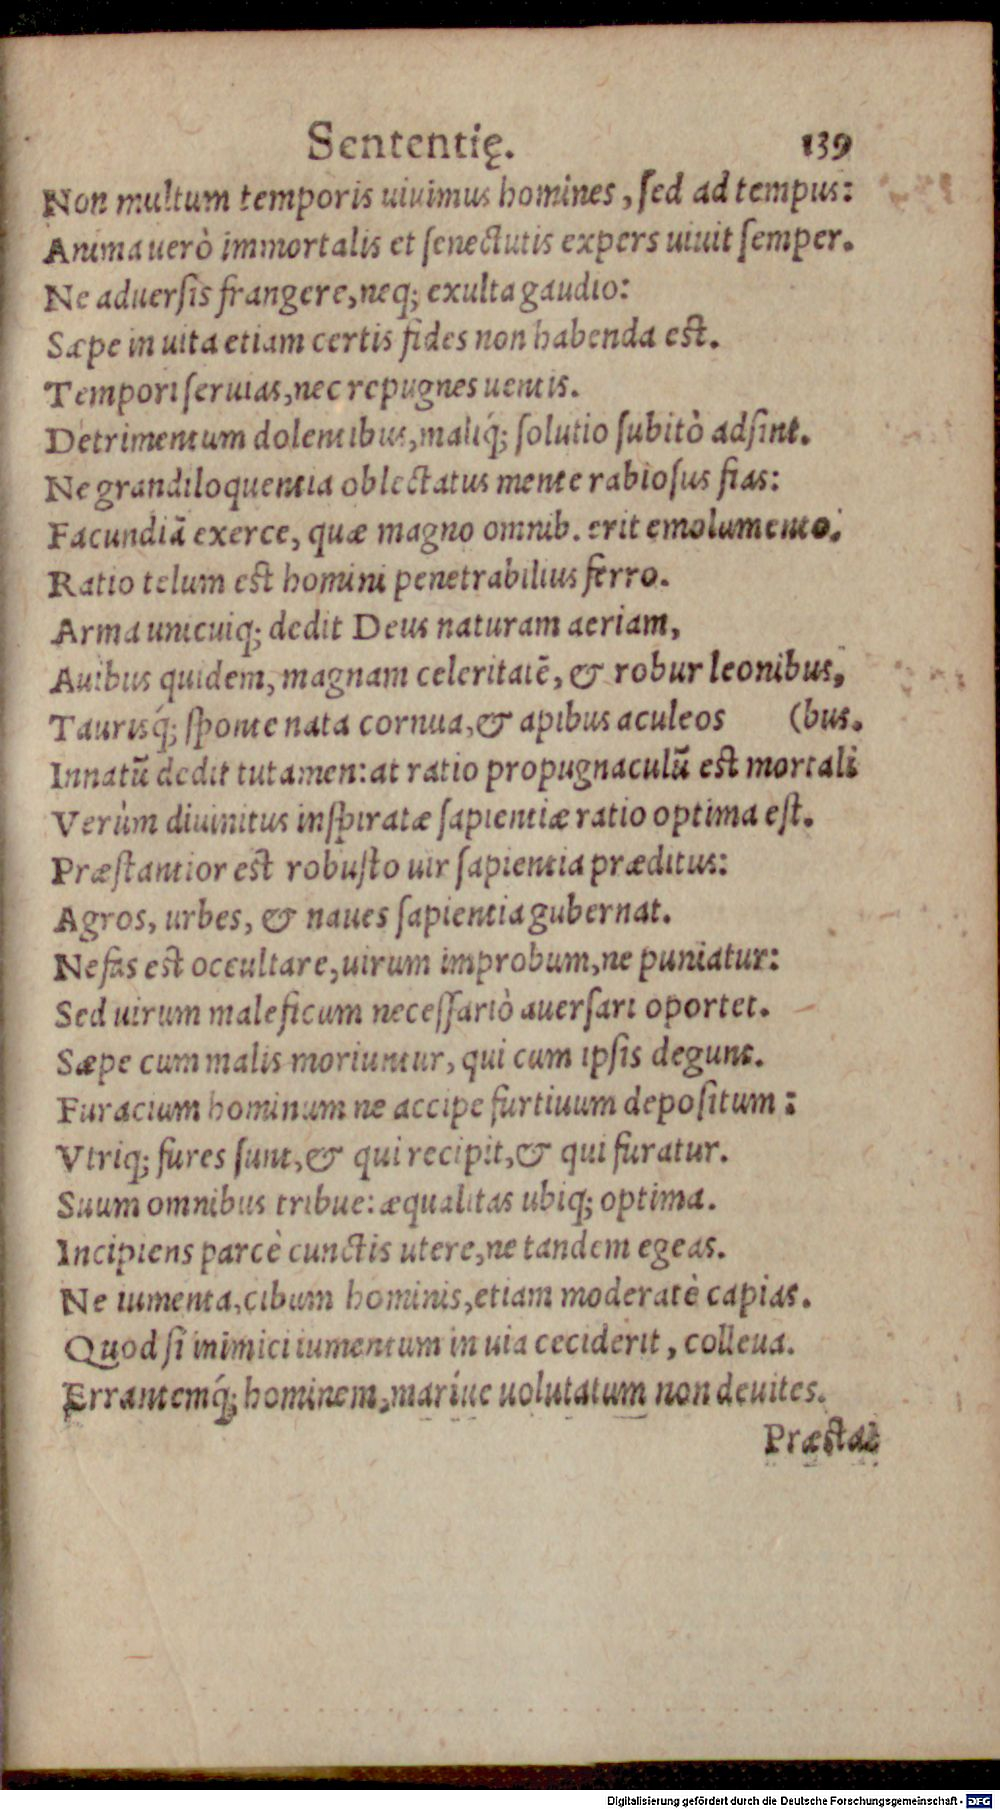 Sententię. 139
Non multum temporis uiuimus homines, ſed ad tempus:
Anima uerò immortalis et ſenectutis expers uiuit ſemper.
Ne aduerſis frangere, neq; exulta gaudio:
Sæpe in uita etiam certis fides non habenda est.
Tempori ſeruias, nec repugnes uentis.
Detrimentum dolentibus, maliq́; ſolutio ſubitò adſint.
Ne grandiloquentia oblectatus mente rabioſus fias:
Facundiã exerce, quæ magno omnib. erit emolumento.
Ratio telum est homini penetrabilius ferro.
Arma unicuiq; dedit Deus naturam aeriam,
Auibus quidem, magnam celeritatẽ, & robur leonibus,
Taurisq́; ſponte nata cornua, & apibus aculeos (bus.
Innatũ dedit tutamen: at ratio propugnaculũ est mortali
Verùm diuinitus inſpiratæ ſapientiæ ratio optima eſt.
Præſtantior est robuſto uir ſapientia præditus:
Agros, urbes, & naues ſapientia gubernat.
Nefas est occultare, uirum improbum, ne puniatur:
Sed uirum maleficum neceſſariò auerſari oportet.
Sæpe cum malis moriuntur, qui cum ipſis degunt.
Furacium hominum ne accipe furtiuum depoſitum:
Vtriq; fures ſunt, & qui recipit, & qui furatur.
Suum omnibus tribue: æqualitas ubiq; optima.
Incipiens parcè cunctis utere, ne tandem egeas.
Ne iumenta, cibum hominis, etiam moderatè capias.
Quod ſi inimici iumentum in uia ceciderit, colleua.
Errantemq́; hominem, mariue uolutatum non deuites.
Præstat
Digitalisierung gefördert durch die Deutsche Forschungsgemeinschaft - DFG